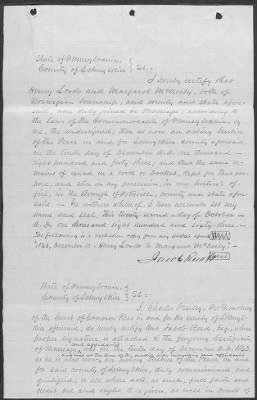 State of Pennsylvania }
County of Schuylkill } SS.
I hereby certify that
Henry Lords and Margaret McNeely, both of
Norwegian Township, and county and state afore-
said, were duly joined in Marriage, according to
the laws of the Commonwealth of Pennsylvania, by
me, the undersigned, then as now an acting Justice
of the Peace in and for Schuylkill county aforesaid
on the tenth day of December A.D. one thousand
eight hundred and forty three, and that the same
remains of record in a book or Docket, kept for that pur-
pose, and still in my possession, in my Justices of-
fice, in the Borough of Pottsville, county and state afore-
said. — In witness whereof I have hereunto set my
hand and seal, this twenty second day of October in
A.D. One thousand eight hundred and sixty three —
The following is a
1843, December 10. Henry Lords to Margaret McNeely."
Jacob Reed
State of Pennsylvania }
County of Schuylkill } SS.
I, Charles
of the Court of Common Pleas in and for the county of Schuyl-
kill aforesaid, do hereby certify that Jacob Reed, Esq., whose
proper signature is attached to the foregoing Certificate
of Marriage, was on the tenth day of December A.D. 1843
as he is now, an acting Justice of the Peace in and
for said county of Schuylkill, duly commissioned and
qualified, to all whose acts, as such, full faith and
credit are and ought to be given, as well in courts of